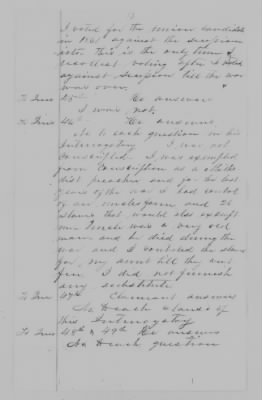 I voted for the union candidate
in 1861 against the secession
ists this is the only time I
recollect voting after I voted
against Secession till the war
was over.
To Inter 25th He answers
I was not.
To Inter 46th He answers
No to each question in his
Interrogatory I was not
Conscripted. I was exempted
from Conscription as a Metho
dist preacher and for the last
years of the war I had control
of an uncles farm and 26
Slaves that would also exempt
me. Uncle was a very old
man and he died during the
war and I controled the slaves
for my aunt till they went
free I did not furnish
any substitute
To Inter 47th Claimant answers
No to each clause of
this Interrogatory
To Inter 48th & 49th He answers
No to each question